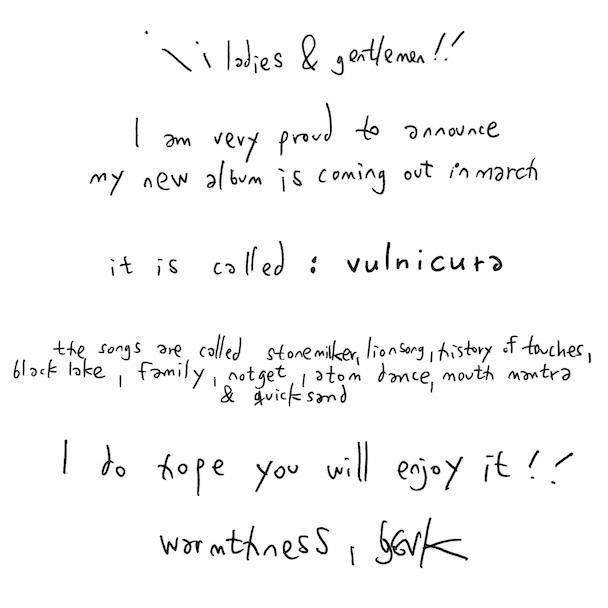 hi ladies & gentlemen!!
I am very proud to announce
my new album is coming out in march
it is called : vulnicura
the songs are called stonemilker, lionsong, history of touches,
black lake, family, notget, atom dance, mouth mantra
& quicksand
I do hope you will enjoy it!!
warmthness, björk